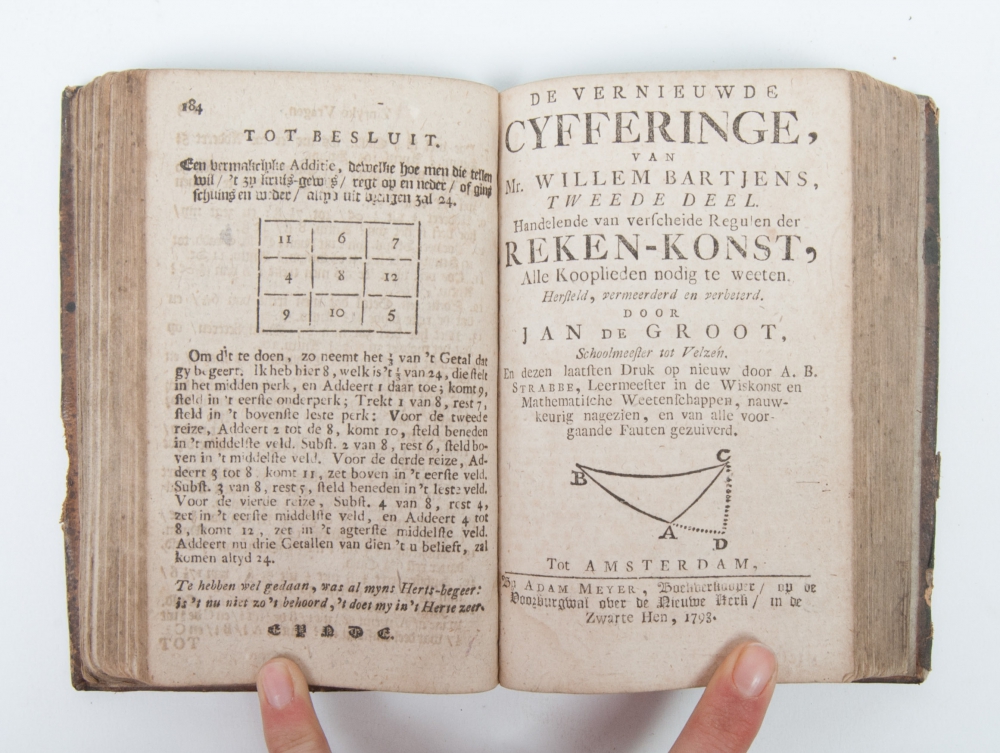 184
TOT BESLUIT.
Een vermakelyke Additie, dewelke hoe men die tellen
wil / 't zy kruis-gewys / regt op en neder / of
schuins en neder / altyd uit brengen zal 24.
11 6 7
4 8 12
9 10 5
Om dit te doen, zo neemt het ⅓ van 't Getal dat
gy begeert. Ik heb hier 8, welk is 't ⅓ van 24, die stelt
in het midden perk, en Addeert 1 daar toe; komt 9,
steld in 't eerste onderperk; Trekt 1 van 8, rest 7,
steld in 't bovenste leste perk: Voor de tweede
reize, Addeert 2 tot de 8, komt 10, steld beneden
in 't middelste veld. Subst. 2 van 8, rest 6, steld bo-
ven in 't middelste veld. Voor de derde reize, Ad-
deert 3 tot 8 komt 11, zet boven in 't eerste veld.
Subst. 3 van 8, rest 5, steld beneden in 't leste veld.
Voor de vierde reize, Subst. 4 van 8, rest 4,
zet in 't eerste middelste veld, en Addeert 4 tot
8, komt 12, zet in 't agterste middelste veld.
Addeert nu drie Getallen van dien 't u belieft, zal
komen altyd 24.
Te hebben wel gedaan, was al mynt Herts-begeer:
is 't nu niet zo 't behoord, 't doet my in 't Herte zeer.
EYNDE.
DE VERNIEUWDE
CYFFERINGE,
VAN
Mr. WILLEM BARTJENS,
TWEEDE DEEL.
Handelende van verscheide Regulen der
REKEN-KONST,
Alle Kooplieden nodig te weeten.
Hersteld, vermeerderd en verbeterd.
DOOR
JAN DE GROOT,
Schoolmeester tot Velzen.
En dezen laatsten Druk op nieuw door A. B.
STRABBE, Leermeester in de Wiskonst en
Mathematische Weetenschappen, nauw-
keurig nagezien, en van alle voor-
gaande Fauten gezuiverd.
B C
A D
Tot AMSTERDAM,
By ADAM MEYER, Boekverkooper / op de
Voorburgwal over de Nieuwe Kerk / in de
Zwarte Hen, 1798.